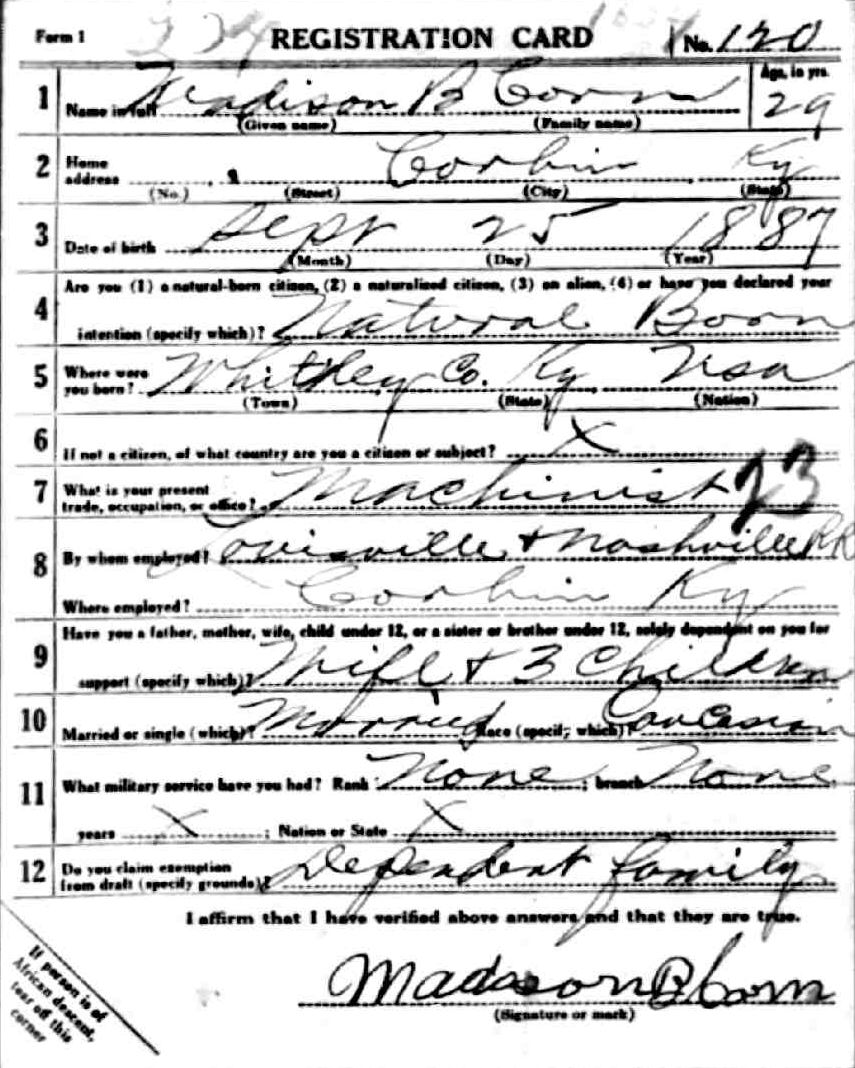 Form 1 REGISTRATION CARD No. 120
1 Name in full Madison B Corn Age, in yrs. 29
(Given name) (Family name)
2 Home address Corbin Ky
(No.) (Street) (City) (State)
3 Date of birth Sept 25 1887
(Month) (Day) (Year)
4 Are you (1) a natural-born citizen, (2) a naturalized citizen, (3) an alien, (4) or have you declared your
intention (specify which)? Natural Born
5 Where were you born? Whitley Co. Ky Usa
(Town) (State) (Nation)
6 If not a citizen, of what country are you a citizen or subject? X
7 What is your present trade, occupation, or office? Machinist 23
8 By whom employed? Louisville & Nashville RR
Where employed? Corbin Ky
9 Have you a father, mother, wife, child under 12, or a sister or brother under 12, solely dependent on you for
support (specify which)? Wife & 3 Children
10 Married or single (which)? Married Race (specify which)? Caucasian
11 What military service have you had? Rank None ; branch None
years X ; Nation or State X
12 Do you claim exemption from draft (specify grounds)? Dependent family
I affirm that I have verified above answers and that they are true.
Madison B Corn
(Signature or mark)
If person is of
African descent,
tear off this
corner